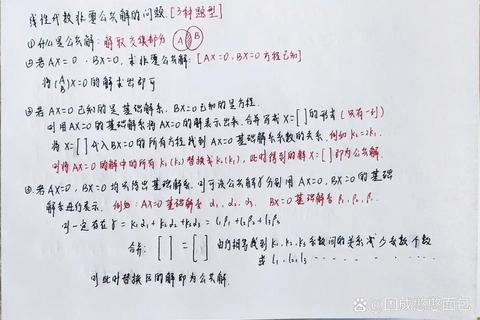 线性代数非零公共解的问题.[3种题型]
①什么是公共解:解取交集部分 A B
②若AX=0,BX=0,求非零公共解:[AX=0,BX=0方程已知]
将(A B)X=0的解求出即可
③若AX=0已知的是基础解系,BX=0已知的是方程.
则用AX=0的基础解系将AX=0的解表示出来,合并写成X=[ ]的形式(只有一列)
将X=[ ]代入BX=0的所有方程找到AX=0基础解系系数的关系.例如k₁=2k₂.
则将AX=0的解中的所有k₁(k₂)替换成k₂(k₁),此时得到的解X=[ ]即为公共解.
④若AX=0,BX=0均只给出基础解系,则可设公共解γ分别用AX=0,BX=0的基础
解系进行表示.例如:AX=0基础解系α₁,α₂,α₃.BX=0基础解系β₁,β₂,β₃.
则一定存在γ=k₁α₁+k₂α₂+k₃α₃=l₁β₁+l₂β₂+l₃β₃
合并:[ ]=[ ]由行相等找到k₁,k₂,k₃系数间的关系减少系数个数
或l₁,l₂,l₃
则此时替换后的解即为公共解.